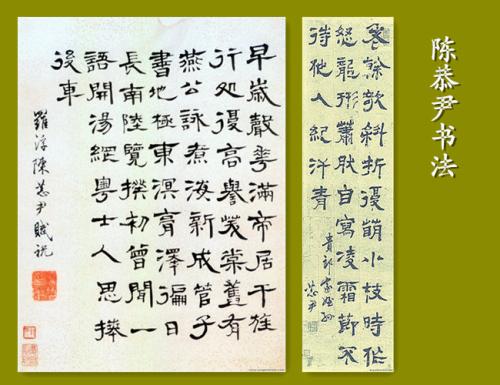 陈恭尹书法
餘欹斜折復萌小枝時作
怒龍形蕭然自寫凌霜節不
待他人紀汗青
恭尹
早歲聲華滿帝居干旌
行処復高譽裳棠舊有
燕公詠煮海新成管子
書地極東溟膏澤徧日
長南陸覽揆初曾聞一
語開湯網粵士人思捧
後車
羅浮陳恭尹賦祝